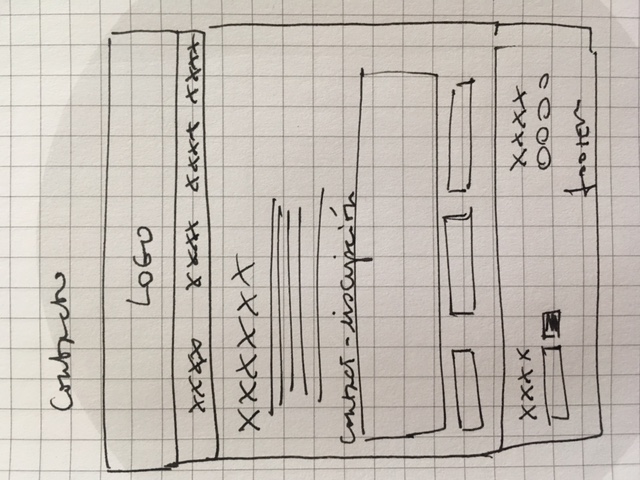 Contacto
LOGO
xxxx xxxx xxxx xxxx
xxxxxxx
contact - inscripción
xxxx xxxx
footer